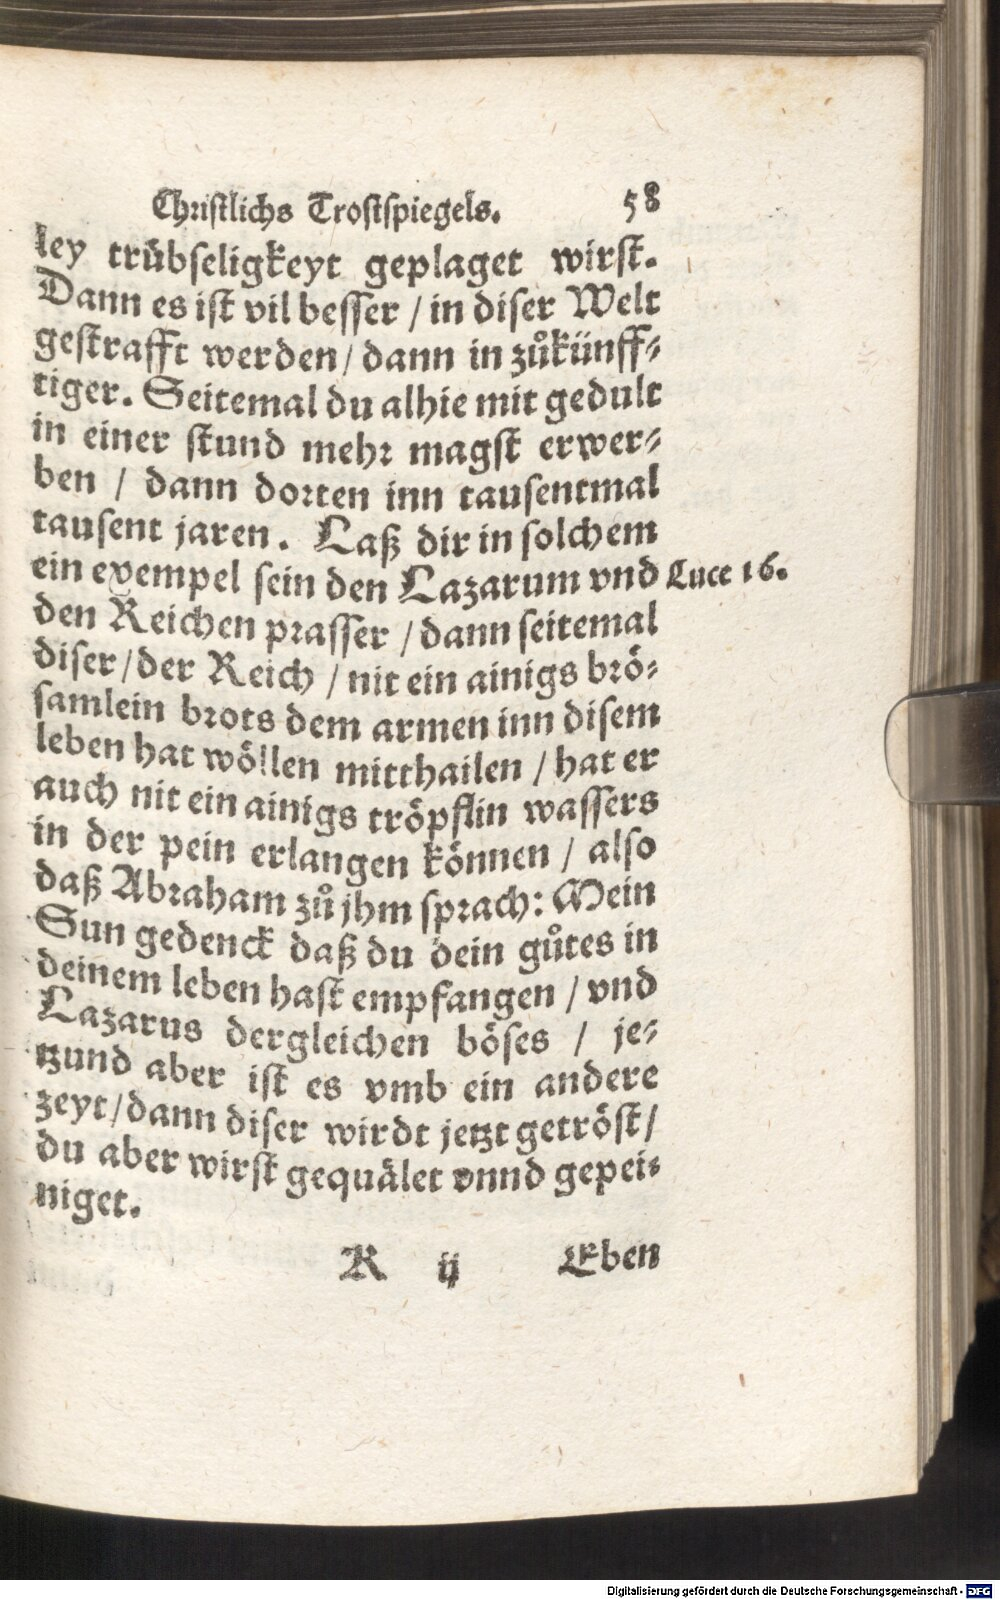 Christlichs Trostspiegels. 58
ley trübseligkeyt geplaget wirst.
Dann es ist vil besser / in diser Welt
gestrafft werden / dann in zůkünff-
tiger. Seitemal du alhie mit gedult
in einer stund mehr magst erwer-
ben / dann dorten inn tausentmal
tausent jaren. Laß dir in solchem
ein exempel sein den Lazarum vnd Luce 16.
den Reichen prasser / dann seitemal
diser / der Reich / nit ein ainigs brö-
samlein brots dem armen inn disem
leben hat wöllen mitthailen / hat er
auch nit ein ainigs tröpflin wassers
in der pein erlangen können / also
daß Abraham zů jhm sprach: Mein
Sun gedenck daß du dein gůtes in
deinem leben hast empfangen / vnd
Lazarus dergleichen böses / je-
tzund aber ist es vmb ein andere
zeyt / dann diser wirdt jetzt getröst /
du aber wirst gequälet vnnd gepei-
niget.
K ij Eben
Digitalisierung gefördert durch die Deutsche Forschungsgemeinschaft - DFG